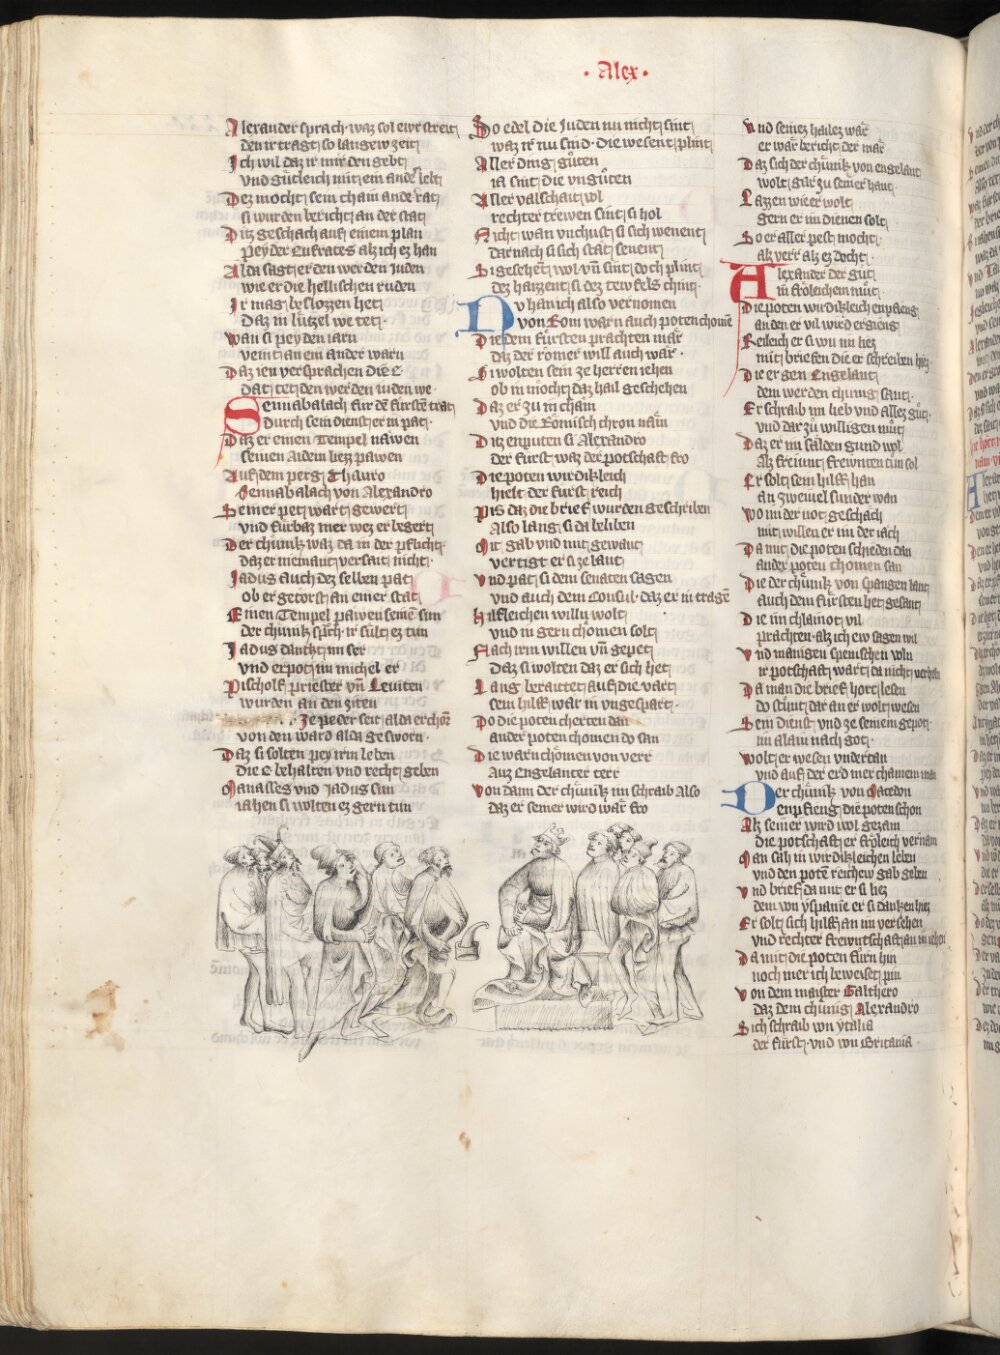 · Alex ·
Alexander sprach · waz sol ewr streit
den ir tragt so langew zeit
Ich wil daz ir mir den gebt
vnd gütleich mit ein ander lebt
Dez mocht sein cham ande rat
si wurden bericht an der stat
Ditz geschach auf einem plan
Pey der Eufrates alz ich ez han
Alda sagt er den werden Juden
wie er die hellischen ruden
Ir mag beslozzen het
Daz in lützel we tet ·
wan si pey den iarn
veint an ein ander warn
Daz ien versprachen die E
dat tet den werden iuden we ·
Sennabalach für dē fürstē trat
durch sein dienst er in pat ·
Daz er einen Tempel näwen
seinen Aidem liezz pawen
Auf dem perg Thauro
Sennabalach von Alexandro
Seiner pet wart gewert
vnd fürbaz mer wez er begert
Der chünk waz da in der pflicht ·
daz er niemant versait nicht ·
Jadus auch dez selben pat
ob er getorst an einer stat
Einen Tempel pawen seinē sun
der chünk sp̄ch · ir sült ez tun
Jadus danckt im ser
vnd erpot im michel er
Pischolf priester vn̄ Leuiten
wurden an den ziten
Ze peder seit alda erchorn
von den ward alda gesworn ·
Daz si solten pey irm leben
die E behalten vnd recht geben
Manasses vnd Jadus sun
iahen si wolten ez gern tun
So edel die Juden nu nicht sint
waz ir nu sind · die wesent plint
Aller ding gůten
ia sint die vngůten
Aller valschait vol
rechter trewen sint si hol
Nicht wan vnchust si sich wenent
dar nach si sich stät senent
Si gesehent wol vn̄ sint doch plint
dez haizzent si dez tewfels chint ·
Nv han ich also vernomen
von Rom warn auch poten chomē
Die dem fürsten prachten mär
daz der römer will auch wär ·
Si wolten sein ze herren iehen
ob in möcht daz hail geschehen
Daz er zu in cham
vnd die Römisch chron näm
Ditz enputen si Alexandro
der fürst waz der potschaft fro
Die poten wirdikleich
hielt der fürst reich
Pis daz die brief wurden geschriben
Also lang si da beliben
Mit gab vnd mit gewant
vertigt er si ze lant
vnd pat si dem senaten sagen
vnd auch dem Consul · daz er in tragē
Hilfleichen willn wolt
vnd in gern chomen solt
Nach irm willen vn̄ gepet
Daz si wolten daz er sich het
Lang beraittet auf die vart
sein hilff wär in vngespart ·
Do die poten cherten dan
ander poten chomen do san
Die warn chomen von verr
Auz Engelanter terr
Von dann der chünik im schraib Also
daz er seiner wird wär fro
Vnd seinez hailez wär
er wär bericht der mär
Daz sich der chünik von engelant
wolt gar zu seiner hant
Lazzen wie er wolt
gern er im dienen solt
So er aller pest mocht
alz verr alz ez docht
Alexander der gut
in frölichem mut
Die poten wirdikleich enpfieng
an den er vil wird ergieng
Reileich er si von im liez
mit briefen die er schreiben hiez
Die er gen Engelant
dem werden chünig sant ·
Er schraib im lieb vnd allez gut
vnd dar zu willigen mut
Daz er im sälden gund wol
Alz freunt frewnten tun sol
Er solt sein hilff han
an zweiuel sunder wan
Wo im der not geschach
mit willen er im der iach
Da mit die poten schieden dan
ander poten chomen san
Die der chünik von spangen lant
auch dem fürsten het gesant
Die im chlainot vil
prachten · alz ich ew sagen wil
Vnd manigen spenischen voln
ir potschaft wart da nicht verholn
Da man die brief hort lesen
do stünt dar an er wolt wesen
Sein dienst vnd ze seinem gepot
im alain nach got ·
wolt er wesen vndertan
vnd auf der erd mer chainem man
Der chünik von Macedon
enpfieng die poten schon
Alz seiner wird wol gezam
die potschaft er frölich vernam
Man sah in wirdikleichen leben
vnd den potē reichew gab geben
vnd brief da mit er si liez
dem von yspanie er si danken hiez
Er solt sich hilff an im versehen
vnd rechter frewntschaft an im iehen
Da mit die poten furn hin
noch mer ich beweiset pin
Von dem maister Galthero
daz dem chünig Alexandro
Sich schraib von ytalia
der fürst · vnd von Britania ·